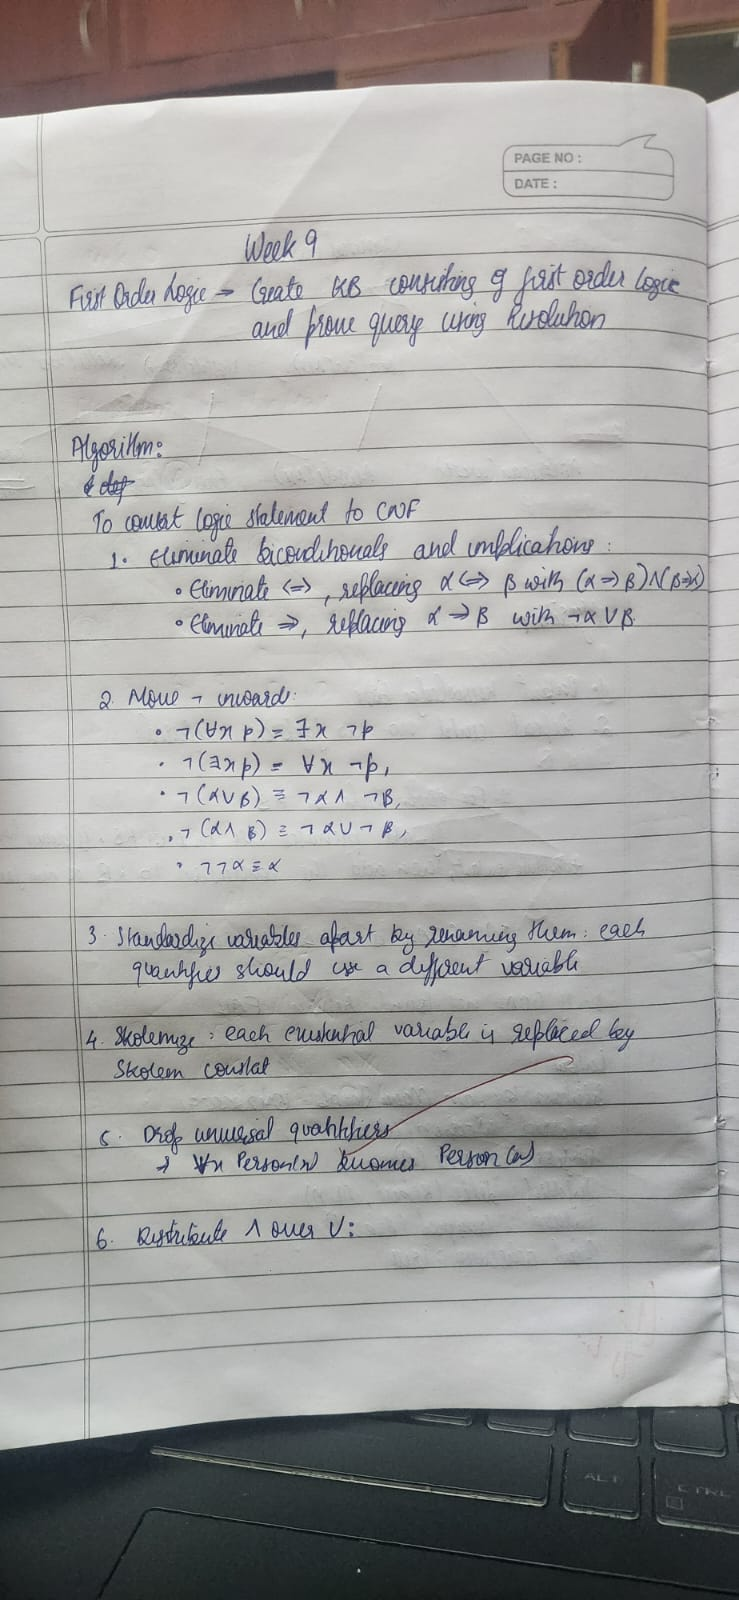 PAGE NO :
DATE :
Week 9
First Order Logic → Create KB consisting of first order logic
and prove query using Resolution
Algorithm:
To convert logic statement to CNF
1. Eliminate biconditionals and implications :
• Eliminate ⇔, replacing α ⇔ β with (α ⇒ β) Λ (β ⇒ α)
• Eliminate ⇒, replacing α → β with ¬α ∨ β.
2. Move ¬ inwards:
• ¬(∀x p) = ∃x ¬p
• ¬(∃x p) = ∀x ¬p,
• ¬(α ∨ β) ≡ ¬α ∧ ¬β,
• ¬(α ∧ β) ≡ ¬α ∨ ¬β,
• ¬¬α ≡ α
3. Standardize variables apart by renaming them : each
quantifier should use a different variable
4. Skolemize : each existential variable is replaced by
Skolem constat
5. Drop universal quantifiers
→ ∀x Person(x) becomes Person(x)
6. Distribute ∧ over ∨ :
ALT
CTRL